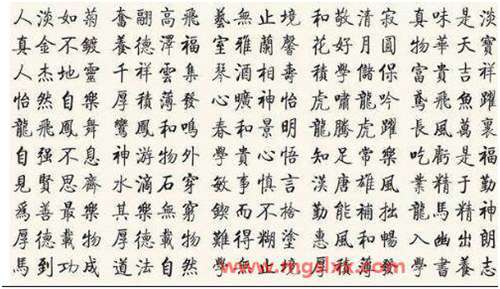 人淡如菊 奮翮高飛 藝無止境 和敬清寂 真味是淡
真金不鍍 養德澤福 室雅蘭馨 花好月圓 物華天寶
人杰地靈 千祥雲集 琴酒相壽 積學儲保 富貴吉祥
怡然自樂 厚積薄發 心曠神怡 虎嘯龍吟 鳶飛魚躍
龍飛鳳舞 鸞鳳和鳴 春和景明 龍騰虎躍 長風萬裏
自强不息 神游物外 學貴心悟 知足常樂 吃虧是福
見賢思齊 水滴石穿 敏事慎言 漢唐雄風 業精于勤
爲善最樂 其樂無窮 鍥而不捨 勤能補拙 馬精神
厚德載物 厚德 難得糊塗 惠風和暢 入幽出朗
馬到功成 道法自然 學無止境 厚積薄發 學書養志